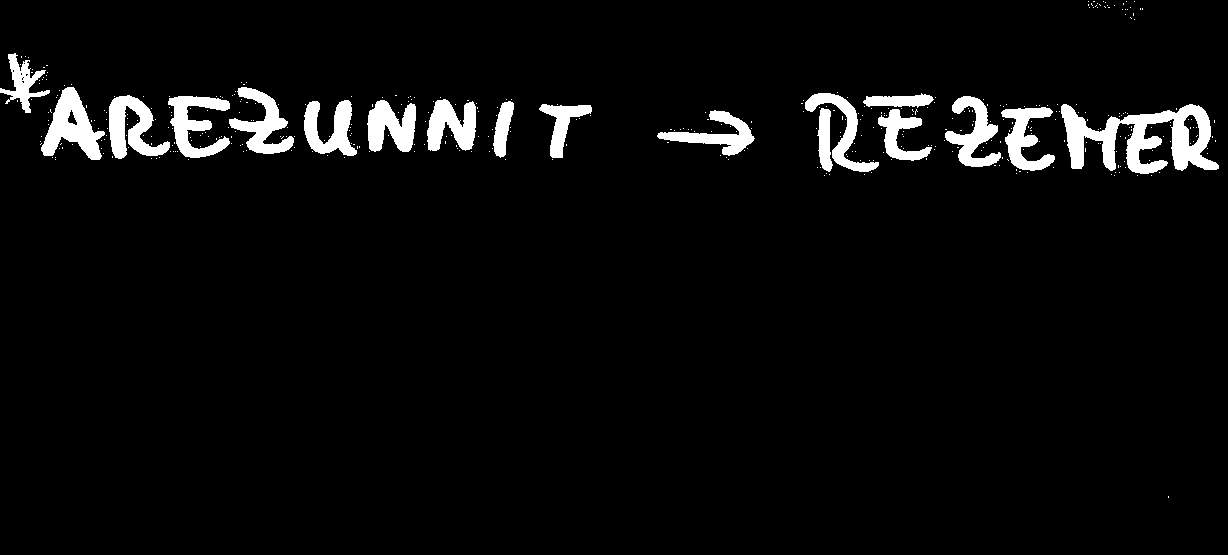 *AREZUNNIT → REZEMER